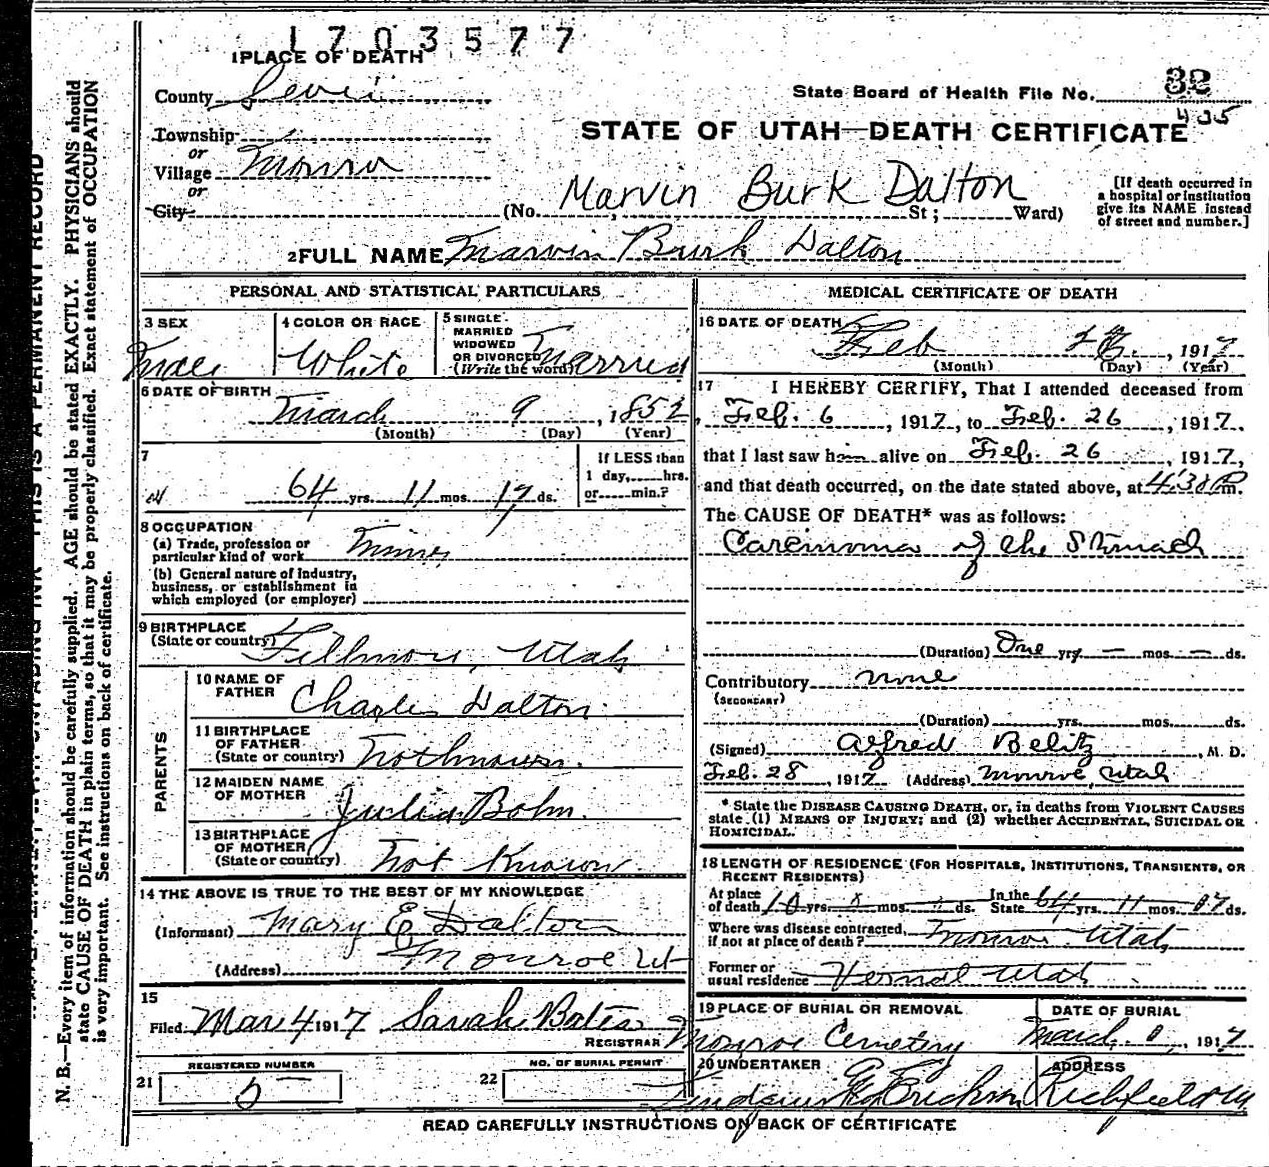 1703577
1 PLACE OF DEATH
County Sevier
State Board of Health File No. 32
435
Township
or
Village Monroe
or
City
STATE OF UTAH—DEATH CERTIFICATE
Marvin Burk Dalton
(No. St; Ward)
[If death occurred in
a hospital or institution
give its NAME instead
of street and number.]
2 FULL NAME Marvin Burk Dalton
PERSONAL AND STATISTICAL PARTICULARS
3 SEX
Male
4 COLOR OR RACE
White
5 SINGLE
MARRIED
WIDOWED
OR DIVORCED
(Write the word) Married
6 DATE OF BIRTH
March 9, 1852
(Month) (Day) (Year)
7
64 yrs. 11 mos. 17 ds.
If LESS than
1 day, hrs.
or min.?
8 OCCUPATION
(a) Trade, profession or
particular kind of work Miner
(b) General nature of industry,
business, or establishment in
which employed (or employer)
9 BIRTHPLACE
(State or country) Fillmore, Utah
PARENTS
10 NAME OF
FATHER Charles Dalton
11 BIRTHPLACE
OF FATHER
(State or country) Not known.
12 MAIDEN NAME
OF MOTHER Julia Bohn.
13 BIRTHPLACE
OF MOTHER
(State or country) Not Known
14 THE ABOVE IS TRUE TO THE BEST OF MY KNOWLEDGE
(Informant) Mary E Dalton
(Address) Monroe Ut
15
Filed Mar 4 1917 Sarah Bates
REGISTRAR
REGISTERED NUMBER
21 5
NO. OF BURIAL PERMIT
22
MEDICAL CERTIFICATE OF DEATH
16 DATE OF DEATH
Feb 26, 1917
(Month) (Day) (Year)
17 I HEREBY CERTIFY, That I attended deceased from
Feb. 6, 1917, to Feb. 26, 1917,
that I last saw him alive on Feb. 26, 1917,
and that death occurred, on the date stated above, at 4.38 P m.
The CAUSE OF DEATH* was as follows:
Carcinoma of the Stomach
(Duration) One yrs — mos. — ds.
Contributory none
(SECONDARY)
(Duration) yrs. mos. ds.
(Signed) Alfred Belitz, M. D.
Feb. 28, 1917 (Address) Monroe Utah
* State the DISEASE CAUSING DEATH, or, in deaths from VIOLENT CAUSES
state (1) MEANS OF INJURY; and (2) whether ACCIDENTAL, SUICIDAL OR
HOMICIDAL.
18 LENGTH OF RESIDENCE (FOR HOSPITALS, INSTITUTIONS, TRANSIENTS, OR
RECENT RESIDENTS)
At place
of death 10 yrs. mos. ds.
In the
State 64 yrs. 11 mos. 17 ds.
Where was disease contracted,
if not at place of death? Monroe Utah
Former or
usual residence Vernal Utah
19 PLACE OF BURIAL OR REMOVAL
Monroe Cemetery
DATE OF BURIAL
March 1, 1917
20 UNDERTAKER
ADDRESS
Richfield Ut
READ CAREFULLY INSTRUCTIONS ON BACK OF CERTIFICATE
THIS IS A PERMANENT RECORD
N. B.—Every item of information should be carefully supplied. AGE should be stated EXACTLY. PHYSICIANS should
state CAUSE OF DEATH in plain terms, so that it may be properly classified. Exact statement of OCCUPATION
is very important. See instructions on back of certificate.